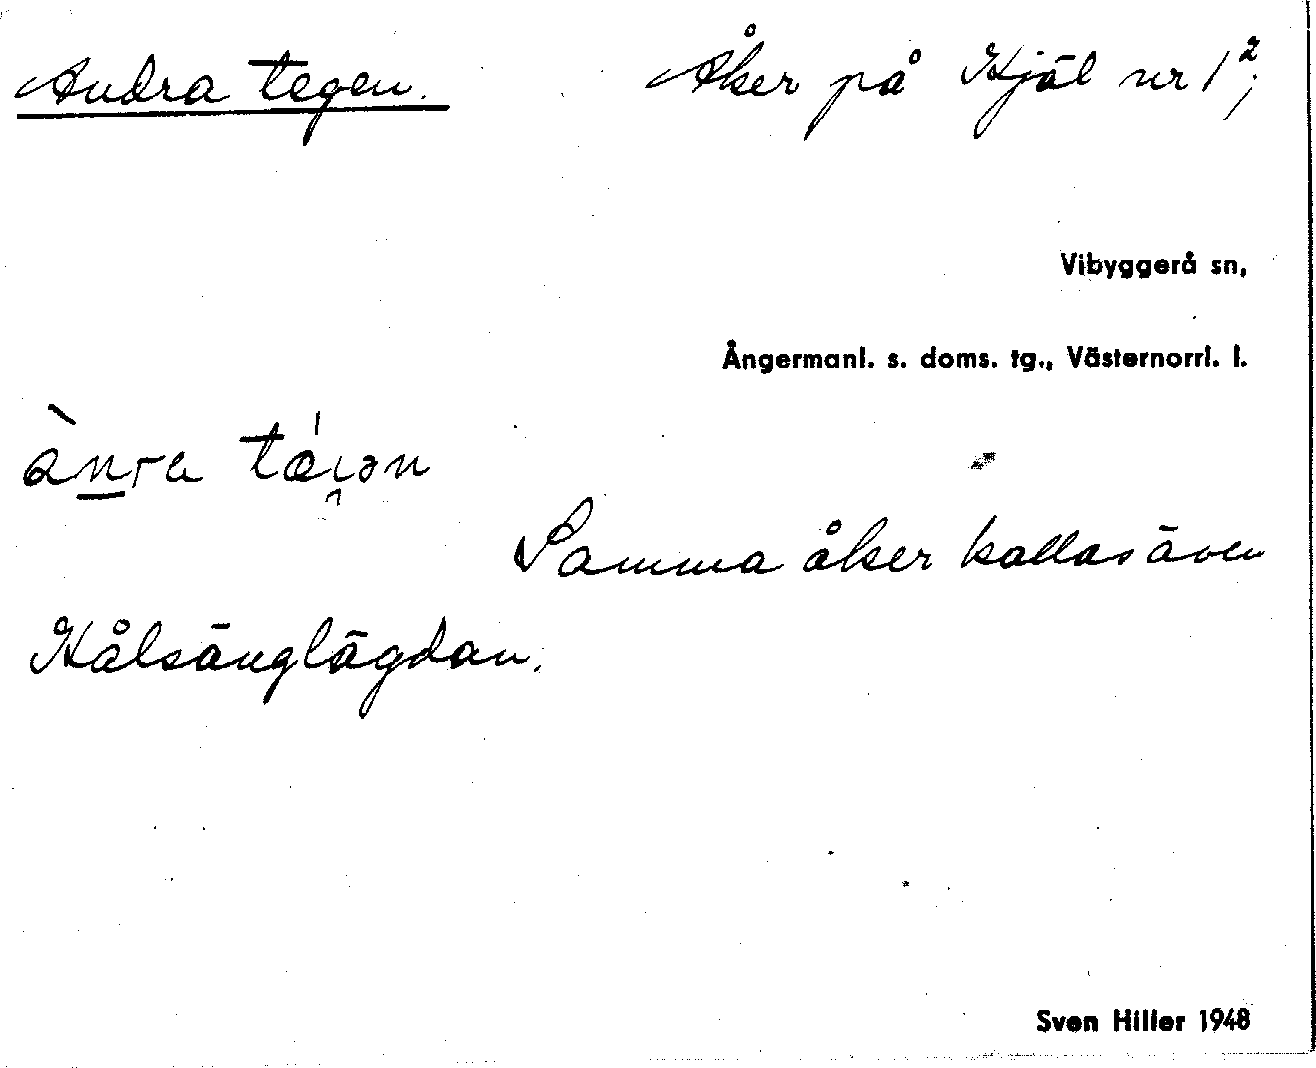 Andra tegen. Åker på Hjäl nr 1²;
Vibyggerå sn,
Ångermanl. s. doms. tg., Västernorrl. l.
ànra tǽı̯ən
Samma åker kallas även
Hålsänglägdan.
Sven Hiller 1948